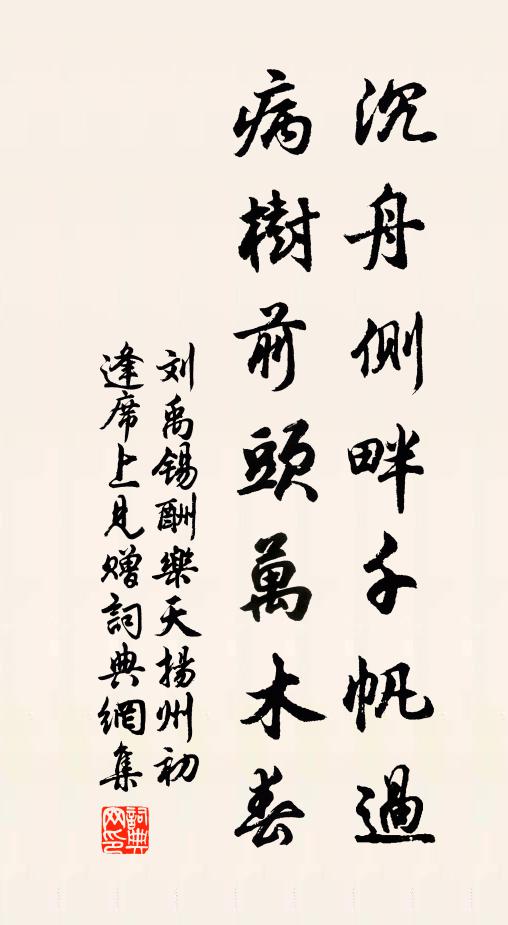 沉舟側畔千帆過
病樹前頭萬木春
刘禹锡酬樂天揚州初
逢席上見贈詞典網集
詞典
网印